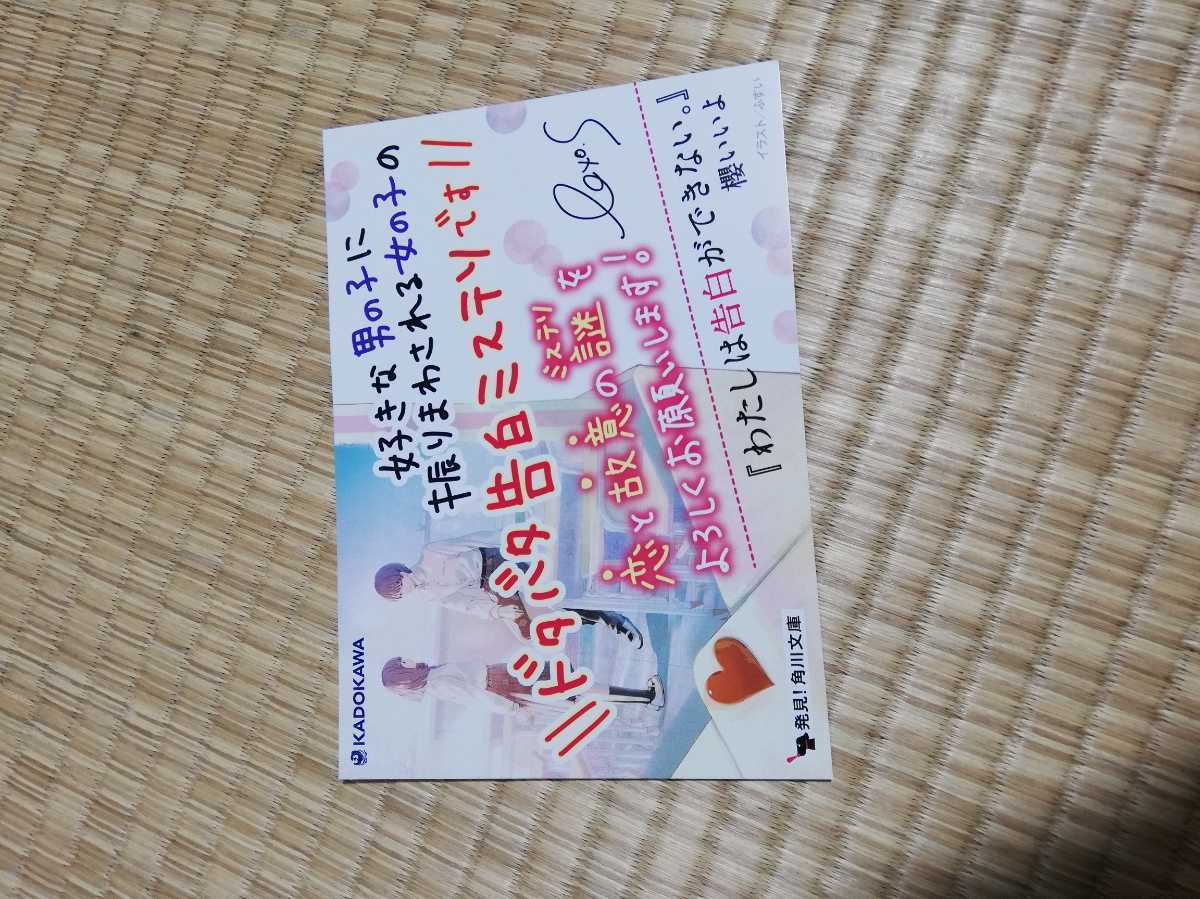 KADOKAWA
好きな男の子に
振りまわされる女の子の
ドタバタ告白ミステリです
恋と故意の謎を
ミステリ
よろしくお願いします!。
『わたしは告白ができない。』
櫻いいよ
イラスト/ふすい
発見!角川文庫